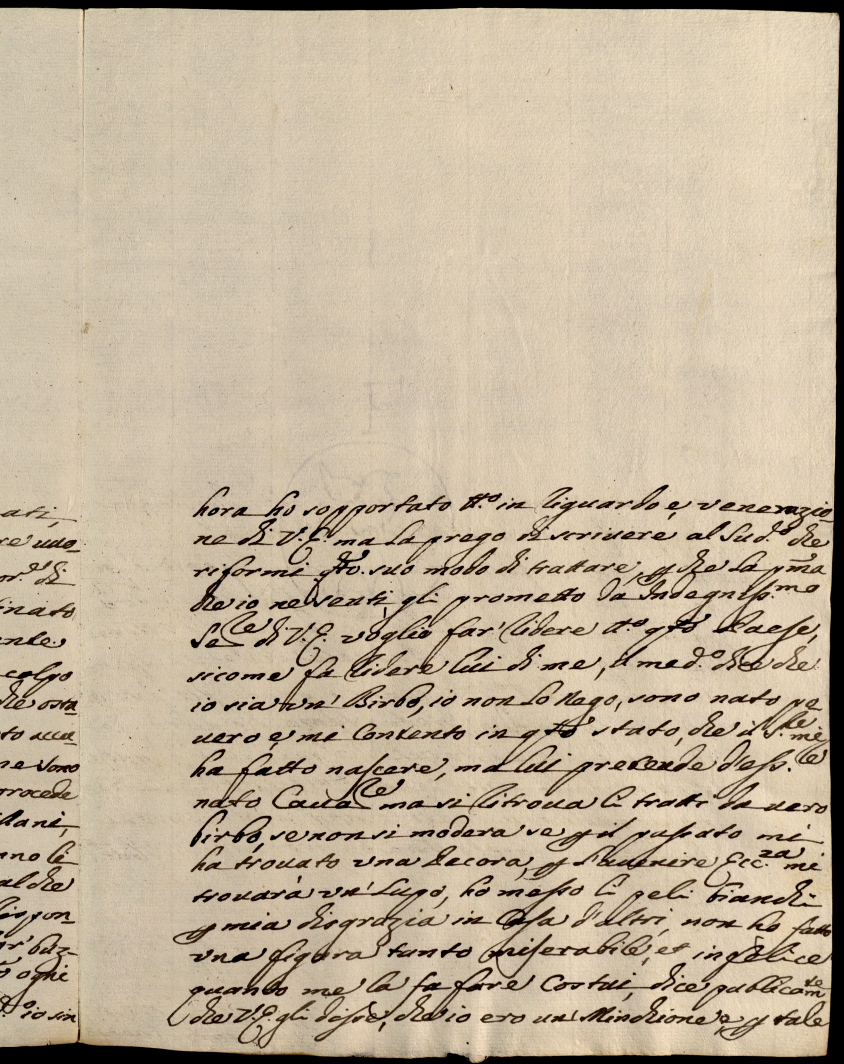 ati,
re uuo
or.e di
inato
ente
colpo
che osta
to accu
ne sono
procede
llani,
nno li
al che
rispon
or' buz-
ogni
d.o io sin
hora ho sopportato tt.o in riguardo, e venerazio
ne di V.E. ma la prego di scrivere al sud.o che
riformi q.to suo modo di trattare, p che la p.ma
che io ne senti, gli prometto da Indegniss.mo
Se.le di V.E. voglio far' ridere tt.o q.to Paese,
sicome fa ridere lui di me, il med.o dice che
io sia un' Birbo, io non lo nego, sono nato po
uero, e mi contento in q.to stato, che il S.re mi
ha fatto nascere, ma lui pretende d'ess.le
nato Caua.le ma si ritroua li tratti da uero
birbo, se non si modera se p il passato mi
ha trouato una Pecora, p l'auenire Ecc.za mi
trouarà un' Lupo, ho messo li peli bianchi
p mia disgrazia in Casa d'altri, non ho fatto
una figura tanto miserabile, et infelice
quanto me la fa fare Costui, dice publicam.te
che V.E. gli disse, che io ero un' Minchione, e p tale